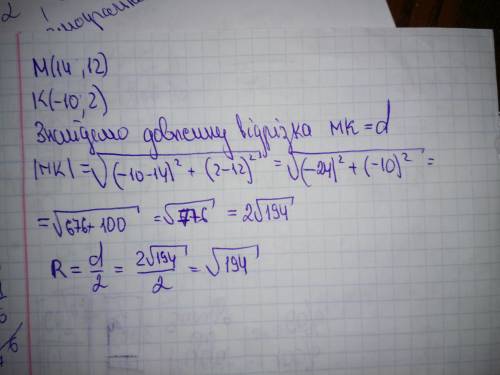 M(14 ; 12)
K(-10; 2)
Знайдемо довжину відрізка MK = d
|MK| = √((-10-14)² + (2-12)²) = √((-24)² + (-10)²) =
= √(676+100) = √776 = 2√194
R = d/2 = 2√194/2 = √194